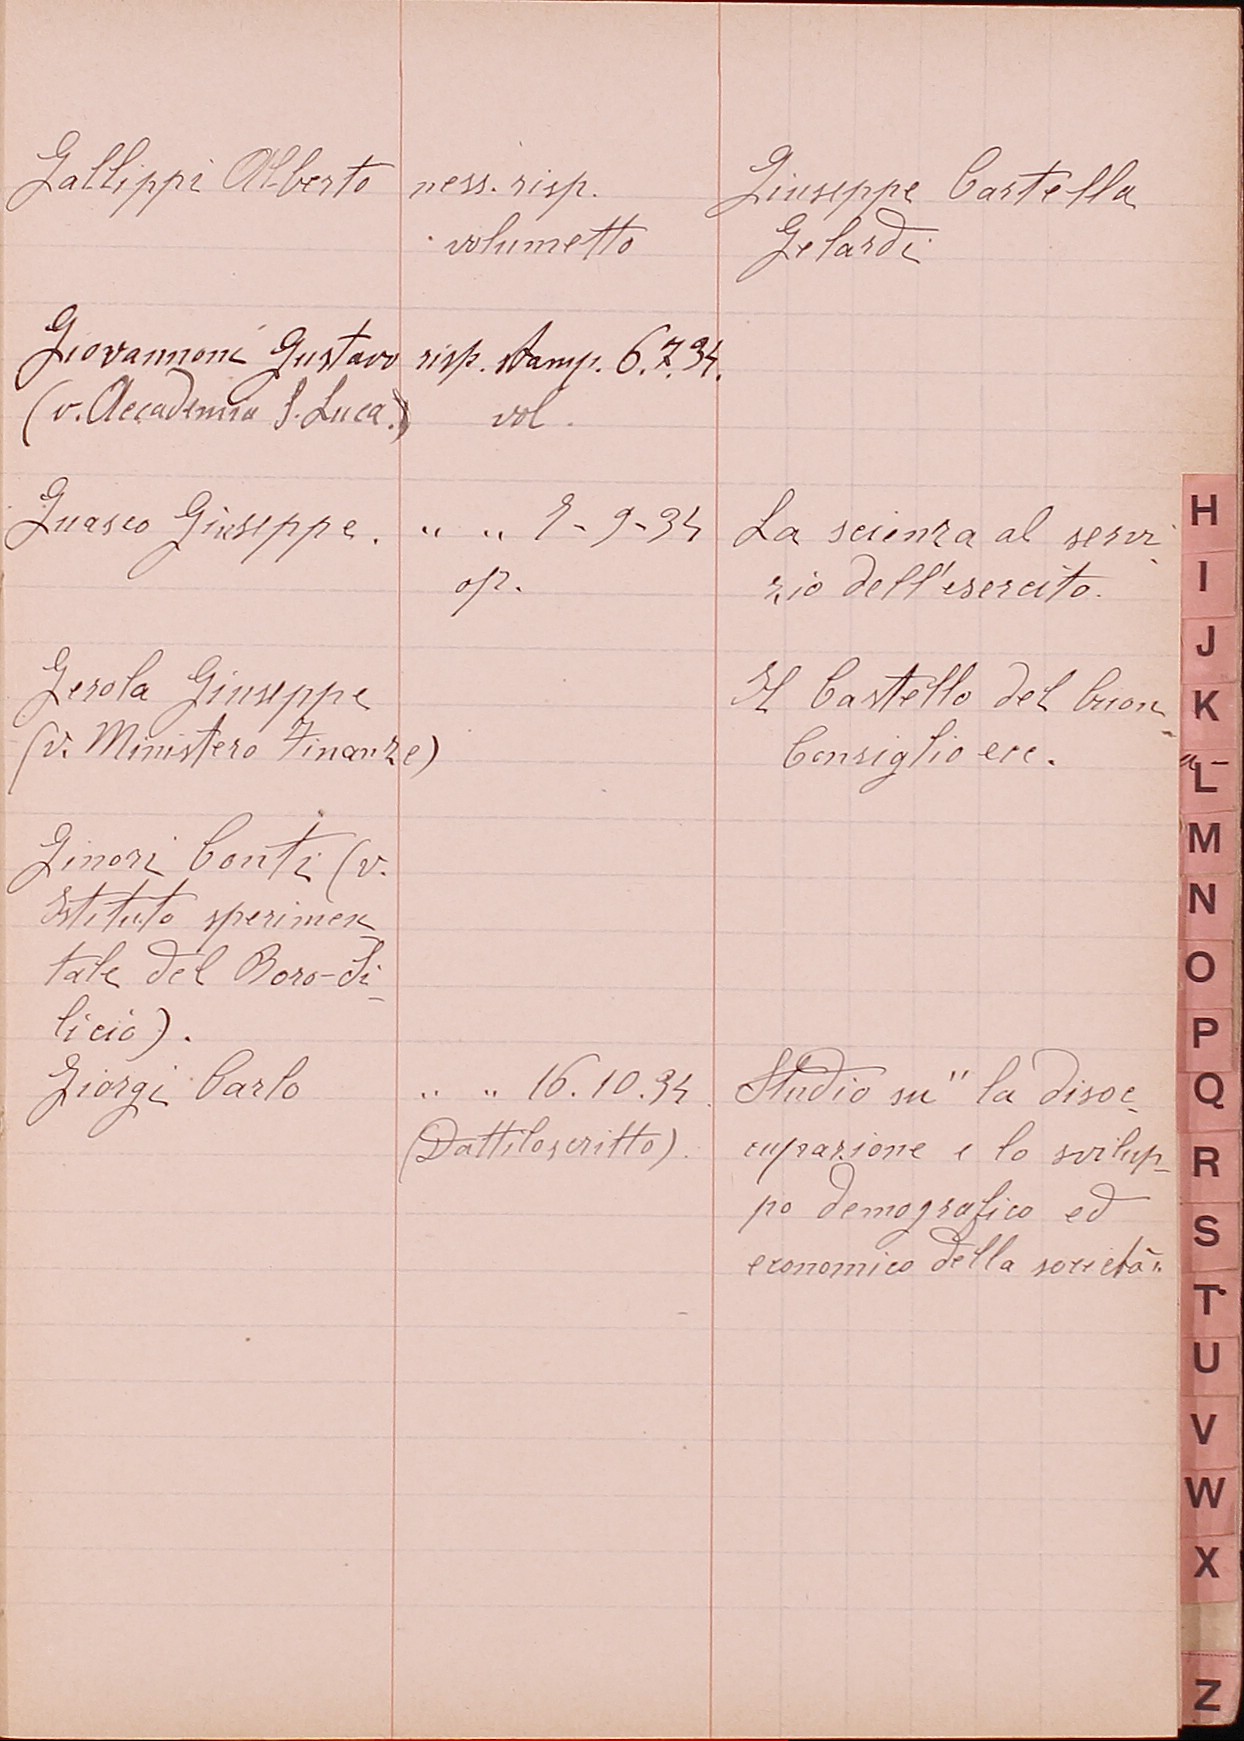 Gallippi Alberto ness. risp. Giuseppe Castella
volumetto Gelardi
Giovannoni Gustavo risp. stamp. 6.7.34.
(v. Accademia S. Luca.) vol.
Guasco Giuseppe. " " 2-9-34 La scienza al servi-
op. zio dell'esercito.
Gerola Giuseppe Il Castello del buon
(v. Ministero Finanze) Consiglio ecc.
Ginori Conti (v.
Istituto sperimen
tale del Boro-Si-
licio).
Giorgi Carlo " " 16.10.34. Studio su " la disoc-
(Dattiloscritto). cupazione e lo svilup-
po demografico ed
economico della società".
H
I
J
K
L
M
N
O
P
Q
R
S
T
U
V
W
X
Z